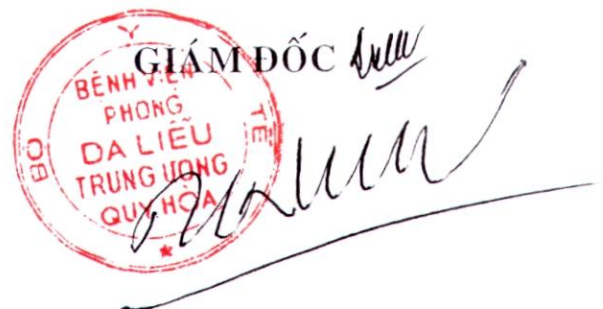 GIÁM ĐỐC
BỘ Y TẾ
BỆNH VIỆN
PHONG
DA LIỄU
TRUNG ƯƠNG
QUY HÒA